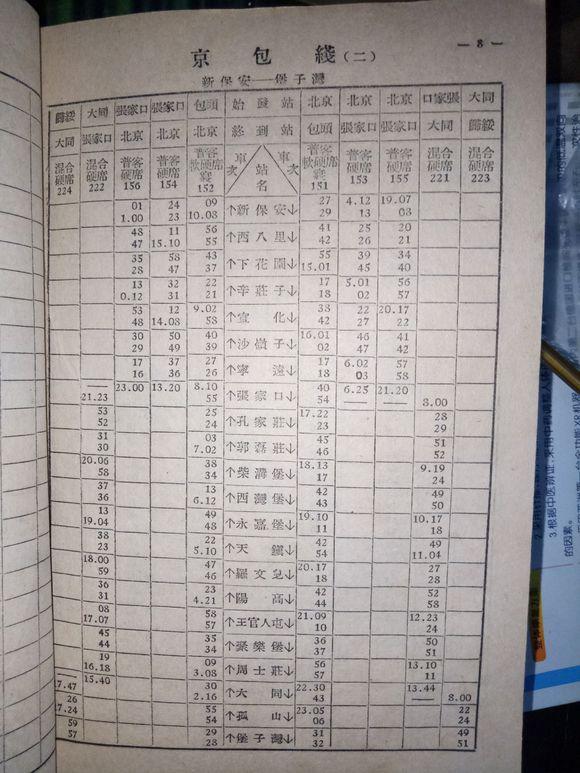 — 8 —
京包綫(二)
新保安——堡子灣
歸綏 大同 張家口 張家口 包頭 始發站 北京 北京 北京 口家張 大同
大同 張家口 北京 北京 北京 終到站 包頭 張家口 張家口 大同 歸綏
混合硬席 224 混合硬席 222 普客硬席 156 普客硬席 154 普客軟硬席寢 152 車次 站名 車次 普客軟硬席寢 151 普客硬席 153 普客硬席 155 混合硬席 221 混合硬席 223
01 24 09 ↑新保安↓ 27 4.12 19.07
1.00 23 10.08 29 13 08
48 11 56 ↑西八里↓ 41 25 20
47 15.10 55 42 26 21
35 58 43 ↑下花園↓ 55 39 34
28 47 37 15.01 45 40
13 32 22 ↑辛莊子↓ 17 5.01 56
0.12 31 21 18 02 57
53 12 9.02 ↑宣化↓ 38 22 20.17
48 14.08 58 42 27 22
30 50 40 ↑沙嶺子↓ 16.01 46 41
29 49 39 02 47 42
17 37 27 ↑寧遠↓ 17 6.02 57
16 36 26 18 03 58
—— 23.00 13.20 8.10 ↑張家口↓ 40 6.25 21.20
21.23 55 54 —— —— 8.00
53 25 ↑孔家莊↓ 17.22 28
52 24 23 29
31 03 ↑郭磊莊↓ 45 51
30 7.02 46 52
20.06 38 ↑柴溝堡↓ 18.13 9.19
58 34 17 24
37 13 ↑西灣堡↓ 42 49
36 6.12 43 50
13 49 ↑永嘉堡↓ 19.10 10.17
19.04 48 11 18
38 22 ↑天鎮↓ 42 49
27 5.10 54 11.04
18.00 47 ↑羅文皂↓ 20.17 27
59 46 18 28
36 23 ↑陽高↓ 42 52
31 4.21 44 58
08 58 ↑王官人屯↓ 21.09 12.23
17.07 57 10 24
45 35 ↑聚樂堡↓ 36 50
44 34 37 51
19 09 ↑周士莊↓ 56 13.10
16.18 3.08 57 11
17.47 15.40 30 ↑大同↓ 22.30 13.44
26 2.16 43 —— 8.00
17.24 55 ↑孤山↓ 23.05 22
59 54 06 24
57 29 ↑堡子灣↓ 31 49
28 32 51